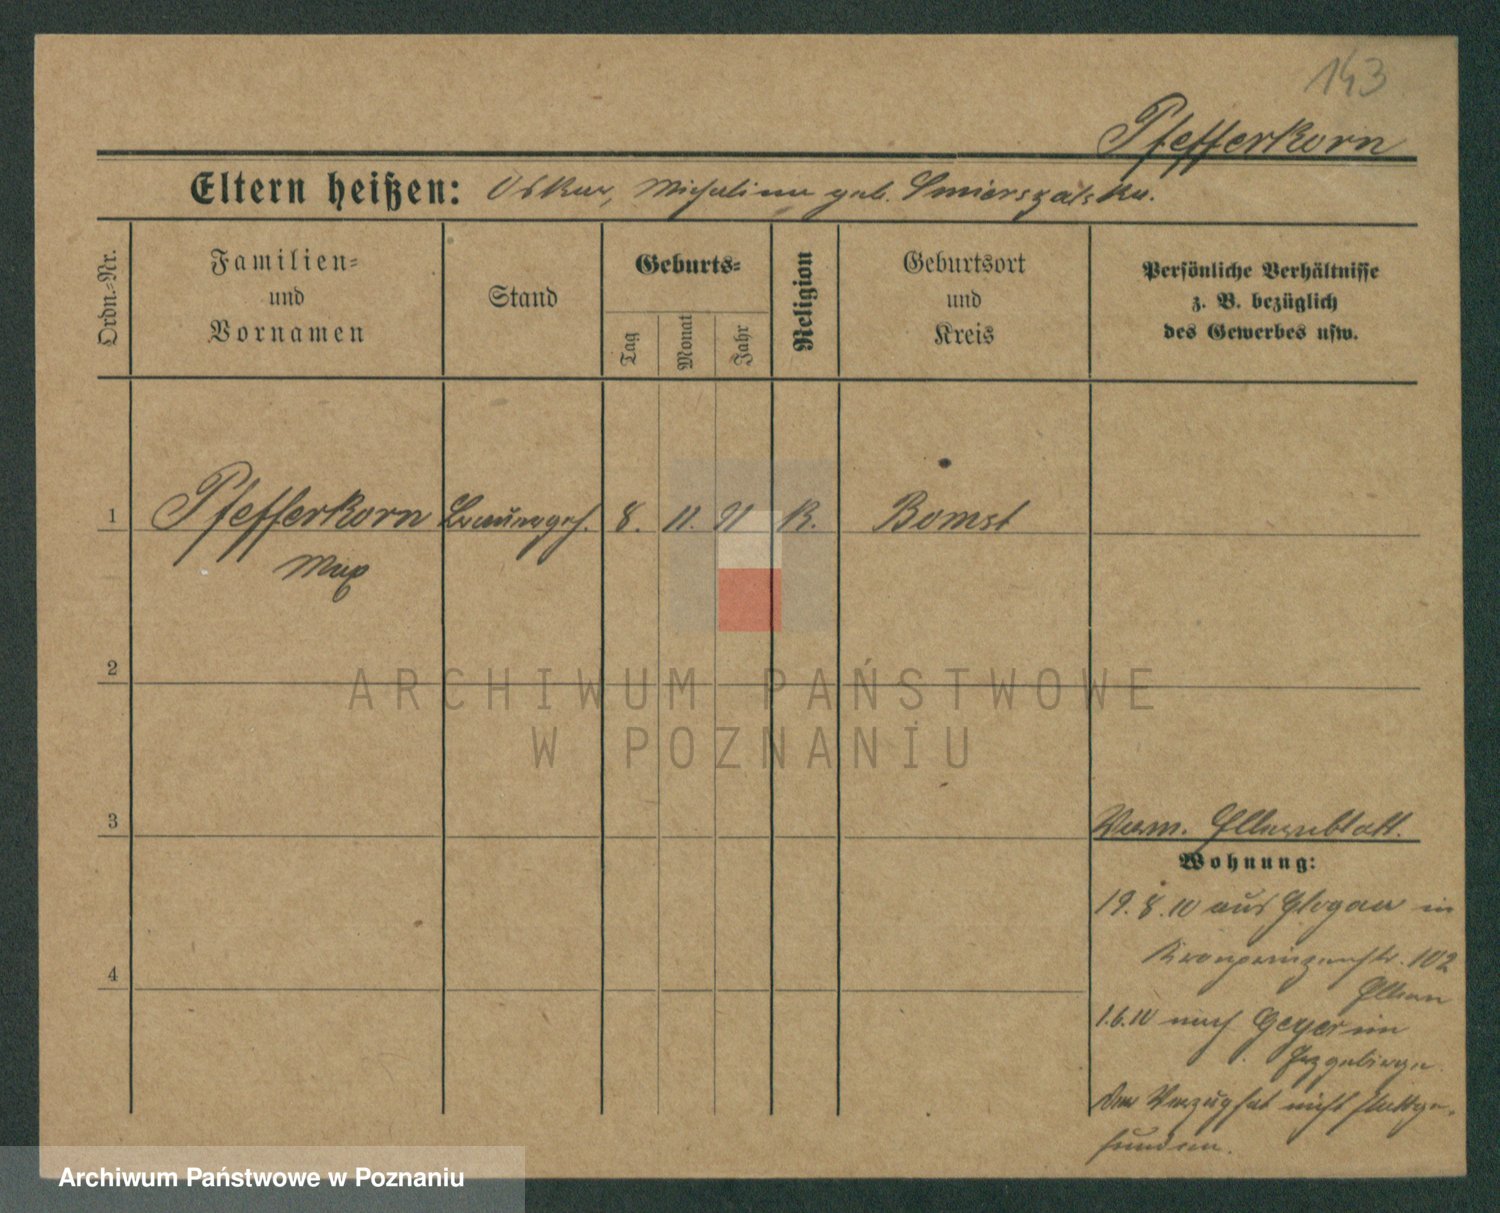 143
Pfefferkorn
Eltern heißen: Oskar, Michalina geb. Smierszalska.
Ordn.-Nr.
Familien-
und
Vornamen
Stand
Geburts-
Tag
Monat
Jahr
Religion
Geburtsort
und
Kreis
Persönliche Verhältnisse
z. B. bezüglich
des Gewerbes usw.
1 Pfefferkorn Brauergeh. 8. 11. 91 K. Bomst
Max
2
ARCHIWUM PAŃSTWOWE
W POZNANIU
3
Verm. Elternblatt.
Wohnung:
19.8.10 aus Glogau in
Kronprinzenstr. 102
Eltern
4
1.6.11 nach Geyer im
Erzgebirge
Der Verzug hat nicht stattge-
funden.
Archiwum Państwowe w Poznaniu